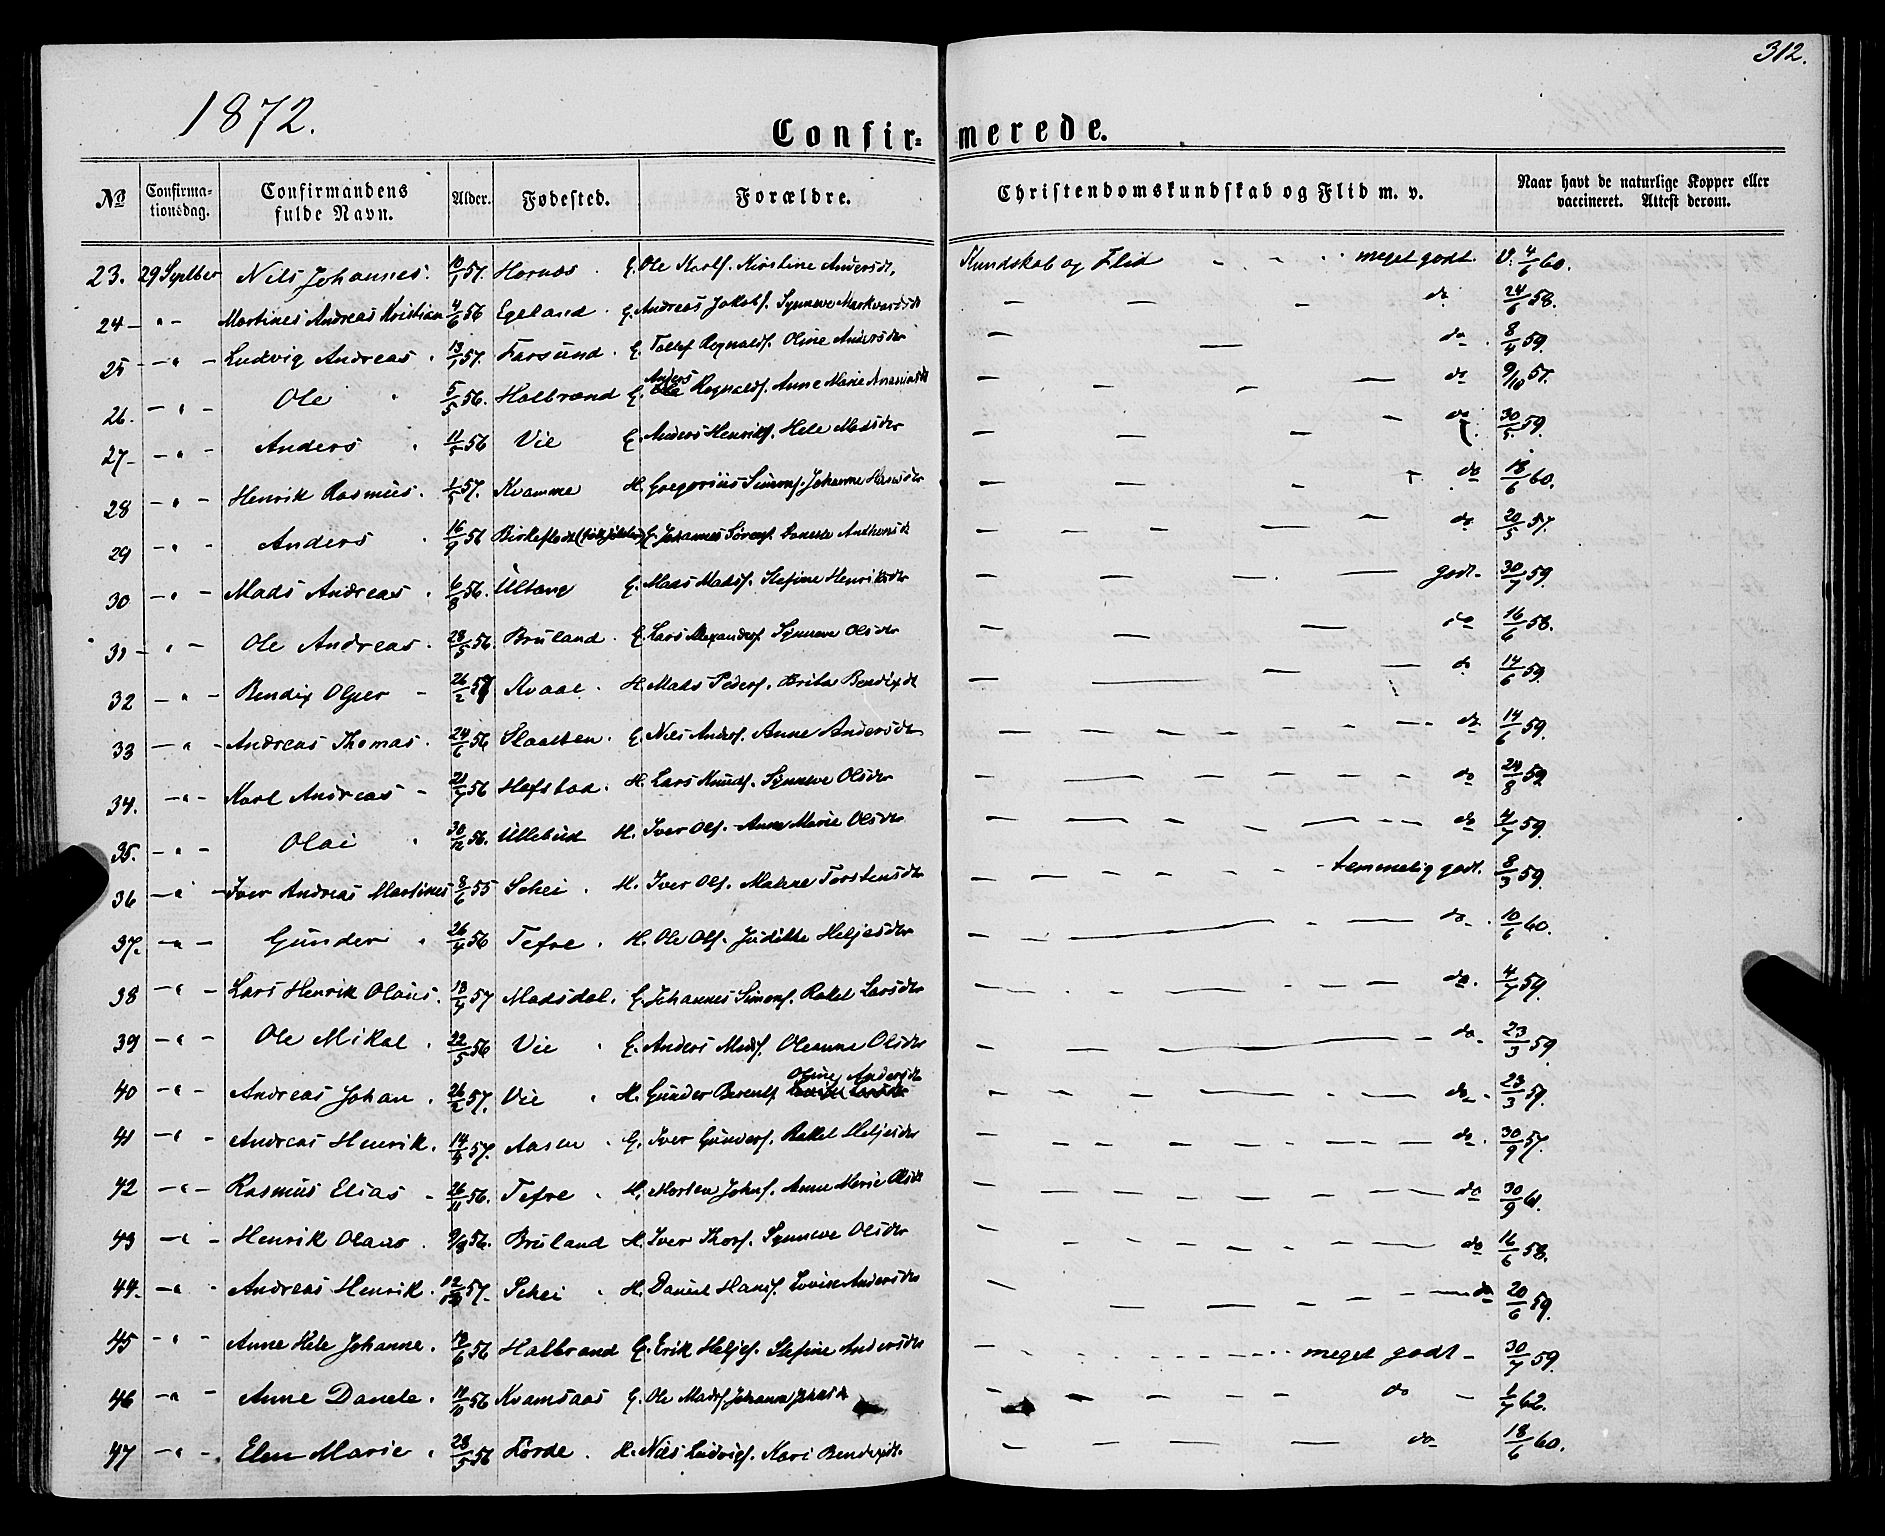 312.
1872.
Confirmerede.
№ Confirmationsdag. Confirmandens fulde Navn. Alder. Fødested. Forældre. Christendomskundskab og Flid m. v. Naar havt de naturlige Kopper eller vaccineret. Attest derom.
23. 29 Septber Nils Johannes. 10/1 57. Hornæs. G. Ole Karls. Kirstine Andersdt, Kundskab og Flid - - - meget godt. V. 4/6 60.
24 - " - Martines Andreas Kristian 4/6 56 Egeland. G. Andreas Jakobs. Synneve Markvardsdt - - - do 24/6 58.
25 - " - Ludvig Andreas. 13/1 57. Farsund. G. Tollef Regnalds. Oline Andersdtr - - do 8/4 59.
26. - " - Ole 5/5 56. Halbrænd G. Anders Regnalds. Anne Marie Ananiasdt - - - - do 9/10 57.
27 - " - Anders 11/5 56 Vie G. Anders Henriks. Hele Madsdtr - - - - do 30/5 59.
28 - " Henrik Rasmus. 1/5 57. Kvamme H. Gregorius Simons. Johanne Hansdtr - - - do 18/6 60.
29 - " - Anders 16/9 56 G. Johannes Sørens. - - - - do 20/5 57.
30 - " - Mads Andreas 6/8 56. Ultang G. Mads Madss. Stefine Henriksdtr - - - - godt - 30/7 59.
31 - " - Ole Andreas. 28/5 56. Bruland. G. Lars Alexanders. Synneve Olsdtr - - - do 16/6 58.
32 - " - Bendix Olger - 26/2 57 Kvaal. H. Mads Peders. Brita Bendixdt - - - - do 14/6 59.
33 - " - Andreas Thomas. 24/6 56 Slaatten. G. Nils Anders. Anne Andersdtr - - - - do 14/6 59.
34. - " - Karl Andreas - 21/7 56 Hafstad. H. Lars Knuds. Synneve Olsdtr - - - - do 24/8 59.
35. - " - Olai 30/12 56. Ullebust H. Iver Ols. Anne Marie Olsdtr - - - - do 4/7 59.
36 - " - Iver Andreas Martines 8/6 55 Schei. H. Iver Ols. Malene Torstensdtr - - - - temmelig godt. 8/3 59.
37. - " - Gunder. 26/4 56 Tefre. H. Ole Ols. Judithe Heljesdtr - - - - do. 10/6 60.
38 - " - Lars Henrik Olaus. 13/4 57 Madsdal. G. Johannes Simons. Rakel Larsdtr - - - - do. 4/7 59.
39 - " - Ole Mikal. 22/5 56 Vie. G. Anders Mads. Oleanne Olsdtr - - - - do. 23/3 59
40 - " - Andreas Johan. 26/2 57. Vie. H. Gunder Bernts. Oline Andersdt - - - - do. 23/3 59.
41 - " - Andreas Henrik. 14/4 57. Aasen. G. Iver Gunders. Rakel Heljesdtr - - - - do. 30/9 57.
42 - " - Rasmus Elias - 26/11 56. Tefre. H. Morten Johns. Anne Marie Olsdt - - - - do 30/9 61.
43 - " - Henrik Olaus. 9/8 56. Bruland H. Iver Thors. Synneve Olsdtr - - - - do 16/6 58.
44. - " - Andreas Henrik. 12/10 57. Schei. H. Daniel Hans. Lovise Andersdtr - - - - do 20/6 59.
45 - " - Anne Hele Johanne. 12/6 56 Halbrænd G. Erik Heljes. Stefine Andersdtr - - - - meget godt - 30/7 59.
46 - " - Anne Danele. 12/10 56 Kvamsaas G. Ole Mads. Johanne - - - - do - 1/7 62.
47 - " - Elen Marie. 28/5 56 Førde. H. Nils Ludvigs. Kari Bendixdt. - - - - do - 18/6 60.